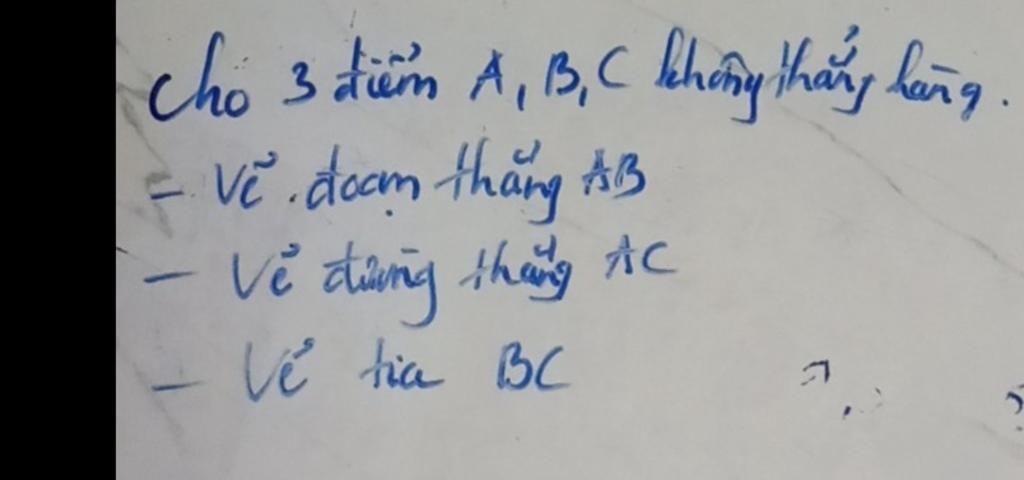 Cho 3 điểm A, B, C không thẳng hàng.
- Vẽ đoạn thẳng AB
- Vẽ đường thẳng AC
- Vẽ tia BC